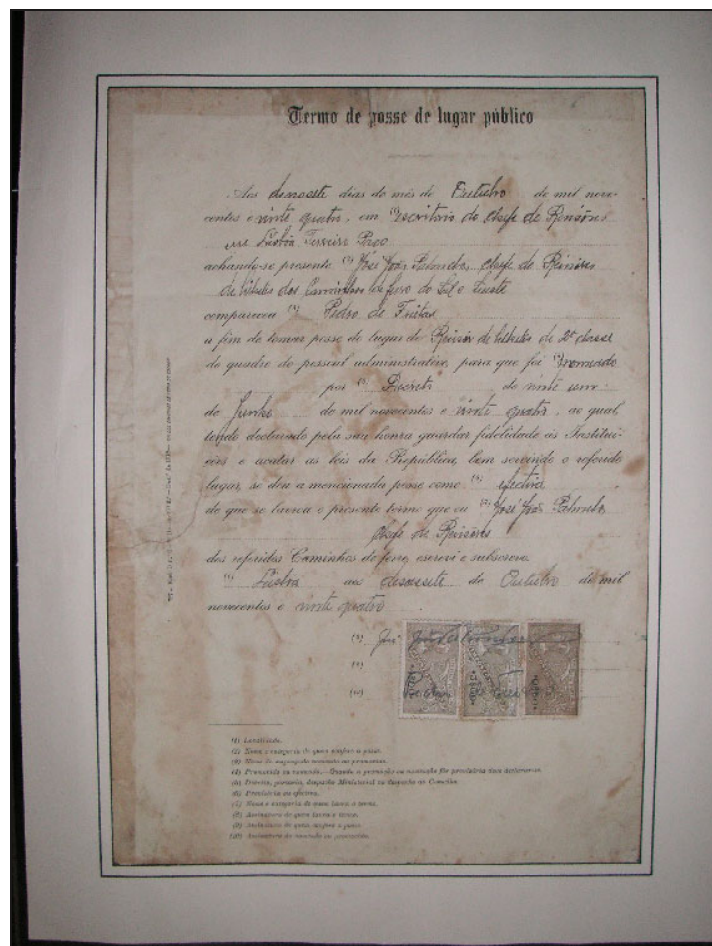 Termo de posse de lugar público
Aos desasete dias do mês de Outubro de mil nove-
centos e vinte quatro, em Escritorio do Chefe de Revisores
em Lisbôa Terreiro Paço
achando-se presente (2) José João Palmela, Chefe de Revisores
de bilhetes dos Caminhos de ferro do Sul e Sueste
compareceu (3) Pedro de Freitas
a fim de tomar posse do lugar de Revisor de bilhetes de 2ª classe
do quadro do pessoal administrativo, para que foi (4) nomeado
por (5) Decreto de vinte um
de Junho de mil novecentos e vinte quatro, ao qual,
tendo declarado pela sua honra guardar fidelidade às Institui-
ções e acatar as leis da República, bem servindo o referido
lugar, se deu a mencionada posse como (6) efectiva
do que se lavrou o presente termo que eu (7) José João
Chefe de Revisores
dos referidos Caminhos de ferro, escrevi e subscrevo.
(1) Lisbôa aos desassete de Outubro de mil
novecentos e vinte quatro
(8) José
(9)
(10)
(1) Localidade.
(2) Nome e categoria de quem confere a posse.
(3) Nome do empregado nomeado ou promovido.
(4) Promovido ou nomeado. — Quando a promoção ou nomeação fôr provisória deve declarar-se.
(5) Decreto, portaria, despacho Ministerial ou despacho do Conselho.
(6) Provisória ou efectiva.
(7) Nome e categoria de quem lavra o termo.
(8) Assinatura de quem lavra o termo.
(9) Assinatura de quem confere a posse.
(10) Assinatura do nomeado ou promovido.